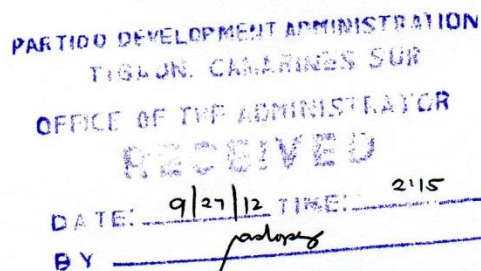 PARTIDO DEVELOPMENT ADMINISTRATION
TIGAON, CAMARINES SUR
OFFICE OF THE ADMINISTRATOR
RECEIVED
DATE: 9/27/12 TIME: 2:15
BY